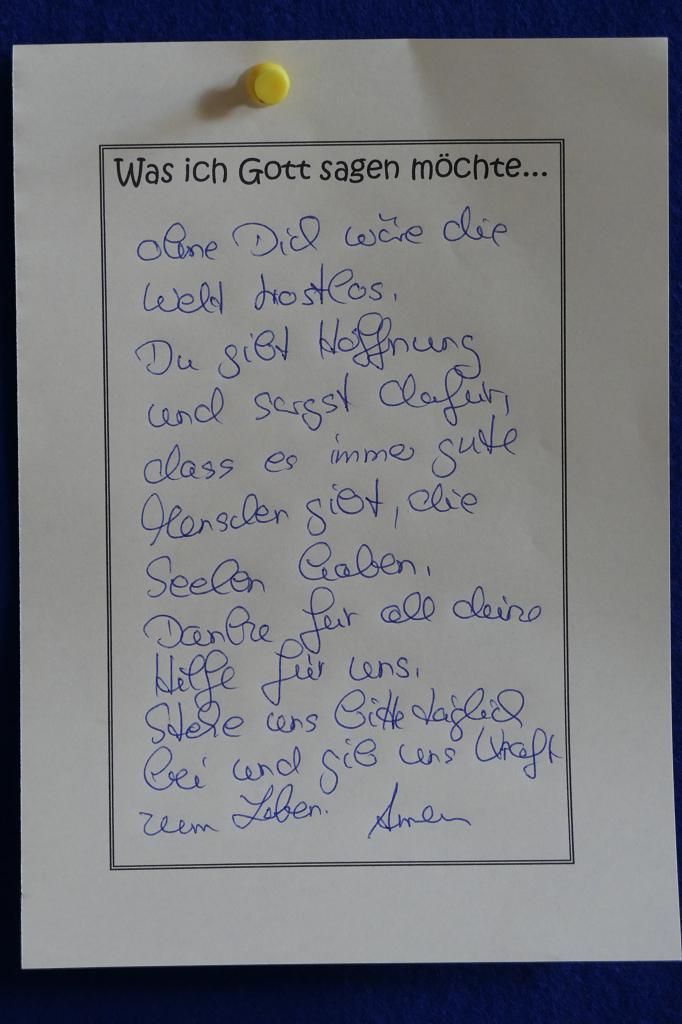 Was ich Gott sagen möchte...
Ohne Dich wäre die
Welt trostlos.
Du gibst Hoffnung
und sorgst dafür,
dass es immer gute
Menschen gibt, die
Seelen haben.
Danke für all deine
Hilfe für uns.
Stehe uns bitte täglich
bei und gib uns Kraft
zum Leben. Amen